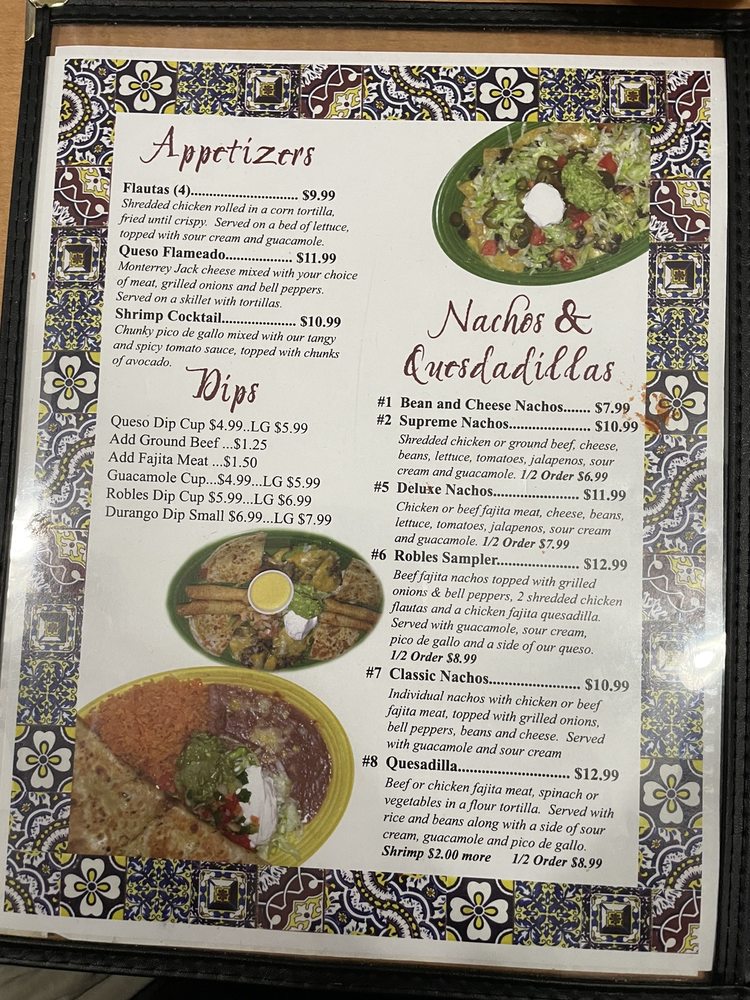 Appetizers
Flautas (4)............................. $9.99
Shredded chicken rolled in a corn tortilla,
fried until crispy. Served on a bed of lettuce,
topped with sour cream and guacamole.
Queso Flameado.................. $11.99
Monterrey Jack cheese mixed with your choice
of meat, grilled onions and bell peppers.
Served on a skillet with tortillas.
Shrimp Cocktail.................... $10.99
Chunky pico de gallo mixed with our tangy
and spicy tomato sauce, topped with chunks
of avocado.
Dips
Queso Dip Cup $4.99..LG $5.99
Add Ground Beef ...$1.25
Add Fajita Meat ...$1.50
Guacamole Cup...$4.99...LG $5.99
Robles Dip Cup $5.99...LG $6.99
Durango Dip Small $6.99...LG $7.99
Nachos &
Quesdadillas
#1 Bean and Cheese Nachos....... $7.99
#2 Supreme Nachos...................... $10.99
Shredded chicken or ground beef, cheese,
beans, lettuce, tomatoes, jalapenos, sour
cream and guacamole. 1/2 Order $6.99
#5 Deluxe Nachos....................... $11.99
Chicken or beef fajita meat, cheese, beans,
lettuce, tomatoes, jalapenos, sour cream
and guacamole. 1/2 Order $7.99
#6 Robles Sampler...................... $12.99
Beef fajita nachos topped with grilled
onions & bell peppers, 2 shredded chicken
flautas and a chicken fajita quesadilla.
Served with guacamole, sour cream,
pico de gallo and a side of our queso.
1/2 Order $8.99
#7 Classic Nachos........................ $10.99
Individual nachos with chicken or beef
fajita meat, topped with grilled onions,
bell peppers, beans and cheese. Served
with guacamole and sour cream
#8 Quesadilla............................. $12.99
Beef or chicken fajita meat, spinach or
vegetables in a flour tortilla. Served with
rice and beans along with a side of sour
cream, guacamole and pico de gallo.
Shrimp $2.00 more 1/2 Order $8.99